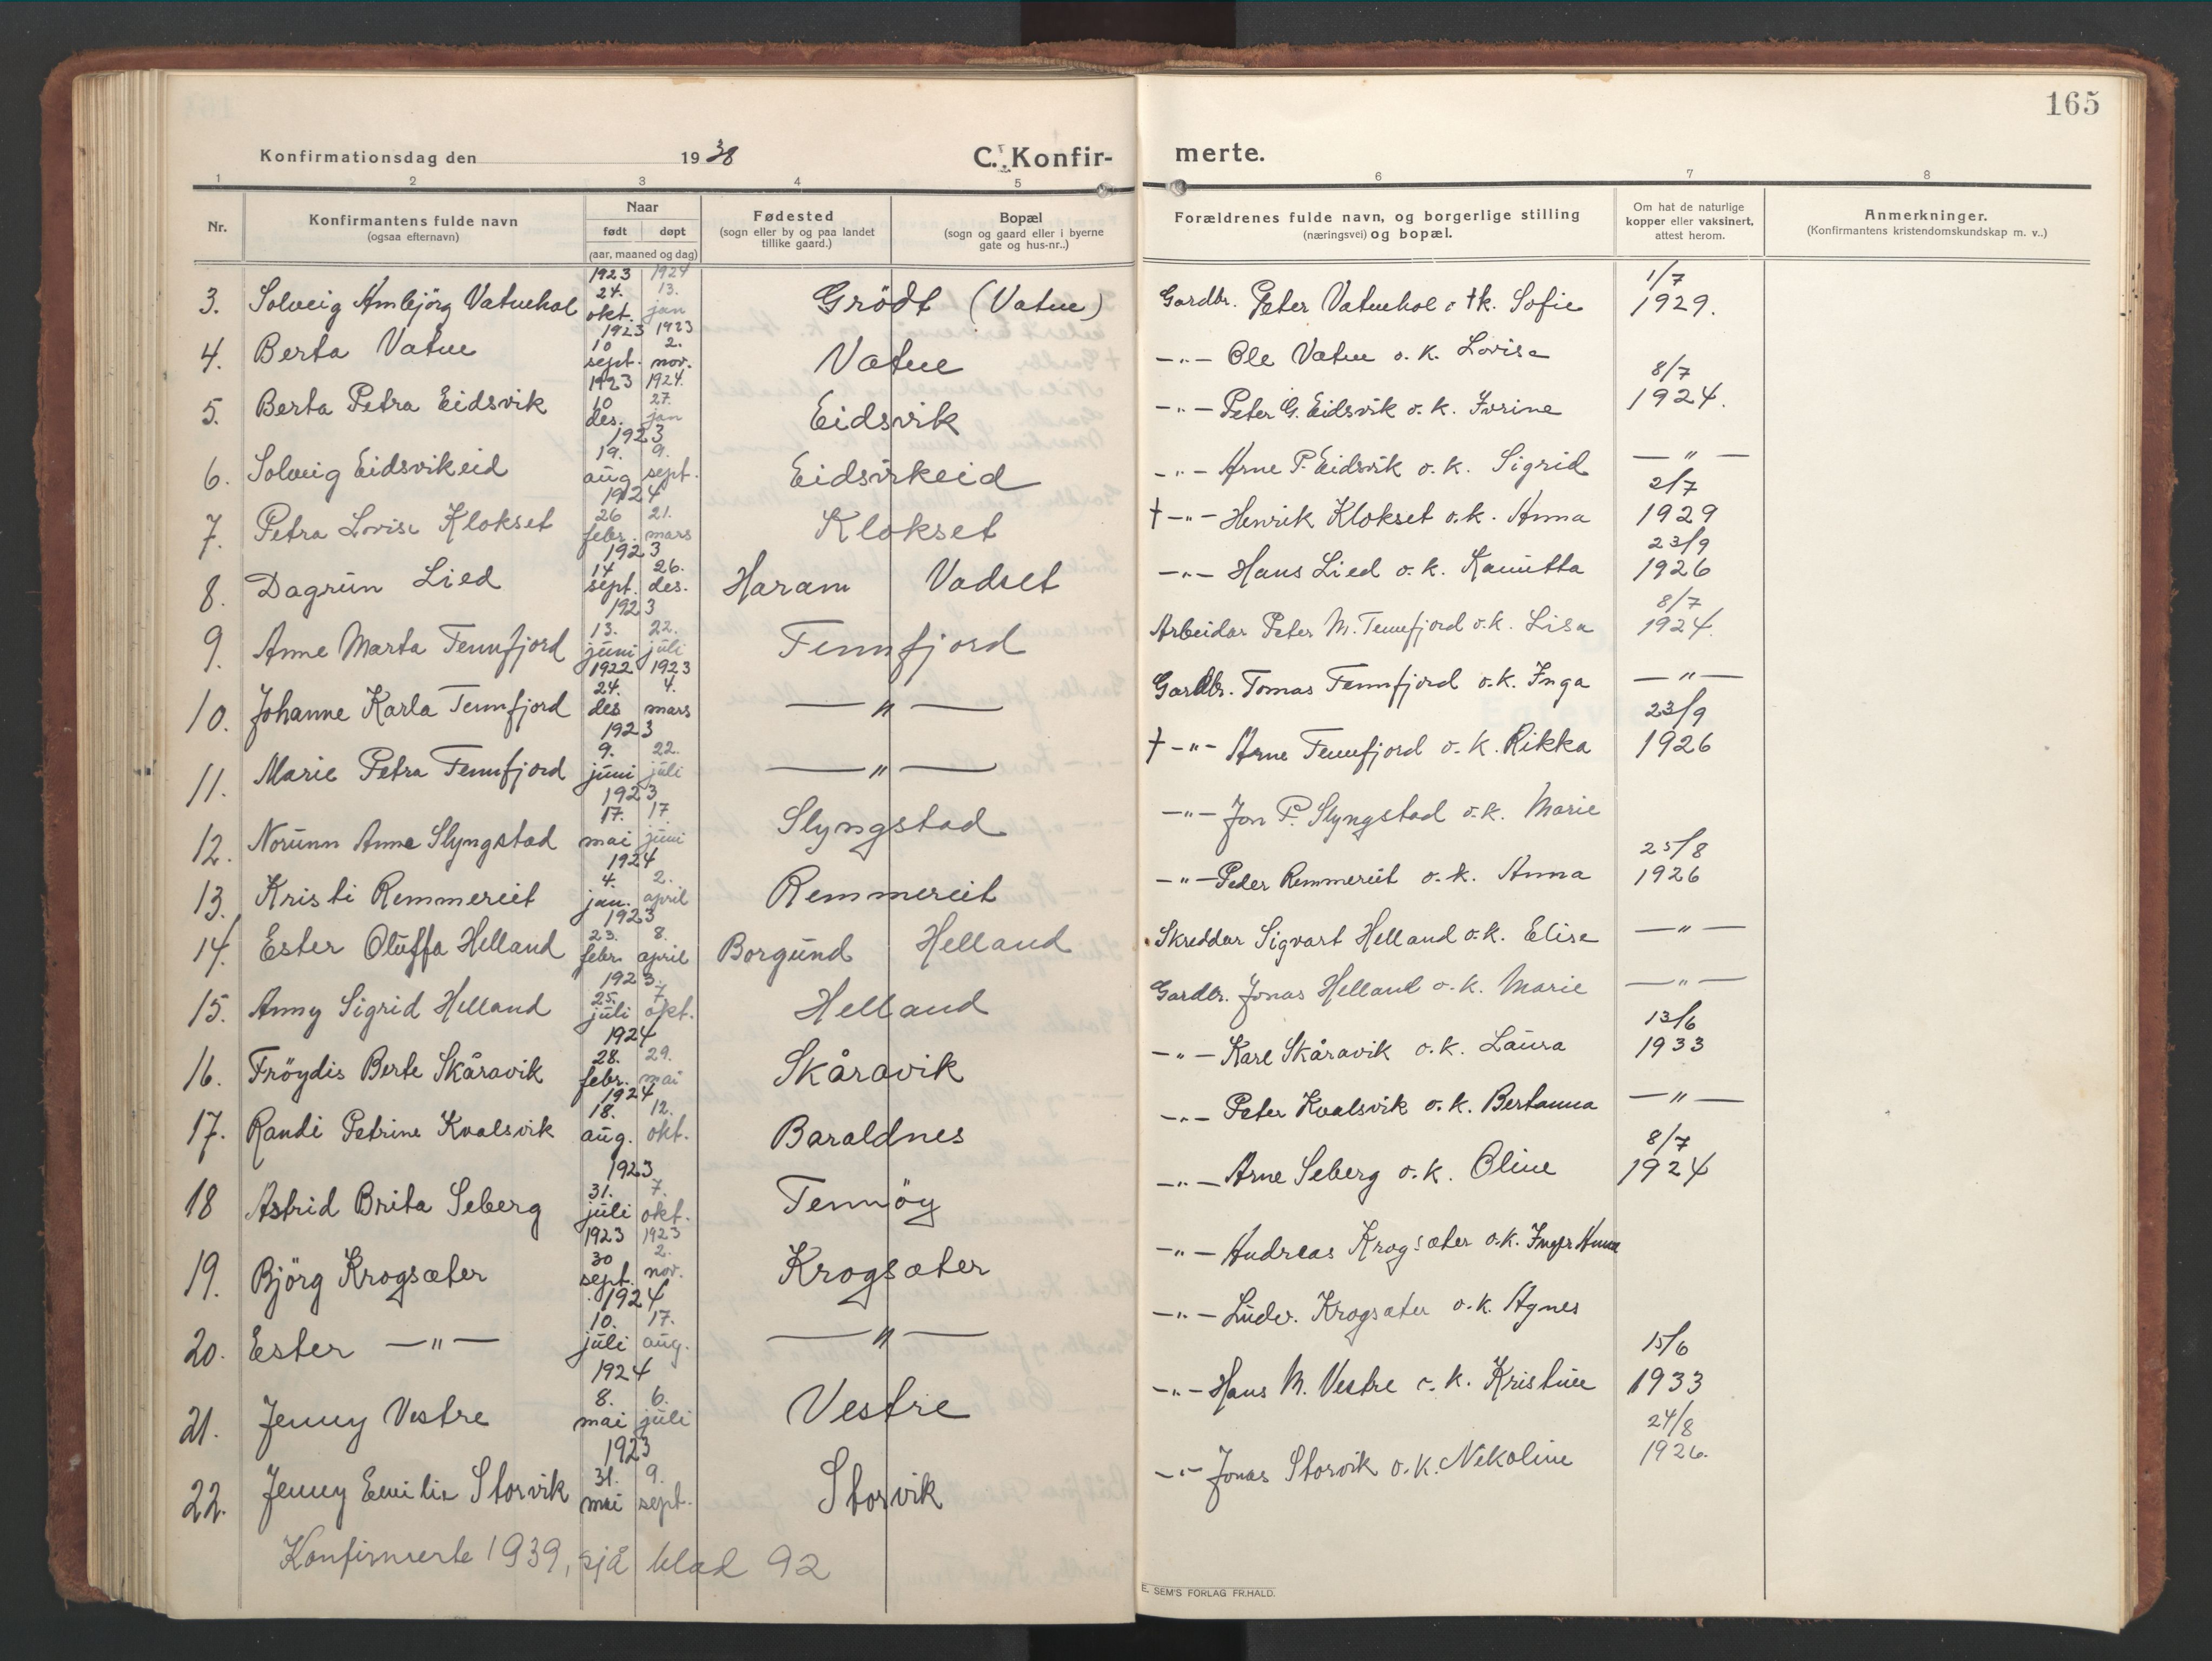 165
Konfirmationsdag den 1938 C. Konfir- merte.
1 2 3 4 5 6 7 8
Nr. Konfirmantens fulde navn (ogsaa efternavn) Naar født døpt (aar, maaned og dag) Fødested (sogn eller by og paa landet tillike gaard.) Bopæl (sogn og gaard eller i byerne gate og hus-nr..) Forældrenes fulde navn, og borgerlige stilling (næringsvei) og bopæl. Om hat de naturlige kopper eller vaksinert, attest herom. Anmerkninger. (Konfirmantens kristendomskundskap m. v..)
3. Solveig Ambjörg Vatnehol 1923 24. okt. 1924 13. jan Grödt (Vatne) Gardbr. Peter Vatnehol o †k. Sofie 1/7 1929.
4. Berta Vatne 1923 10 sept. 1923 2. nov. Vatne -„- Ole Vatne o. k. Lovise
5. Berta Petra Eidsvik 1923 10 des. 1924. 27. jan Eidsvik -„- Peter G. Eidsvik o. k. Jorine 8/7 1924.
6. Solveig Eidsvikeid 1923 19. aug. 9. sept. Eidsvikeid -„- Arne P. Eidsvik o. k. Sigrid -„-
7. Petra Lovise Klokset 1924 26 febr. 21. mars Klokset † -„- Henrik Klokset o. k. Anna 2/7 1929
8. Dagrun Lied 1923 14 sept. 26. des. Haram Vadset -„- Hans Lied o. k. 23/9 1926
9. Anne Marta Tennfjord 1923 13. juni 22. juli Tennfjord Arbeidar Peter M. Tennfjord o. k. Lisa 8/7 1924.
10. Johanne Karla Tennfjord 1922 24. des 1923 4. mars -„- Gardbr. Tomas Tennfjord o. k. Inga -„-
11. Marie Petra Tennfjord 1923 9. juni 22. juli -„- † -„- Arne Tennfjord o. k. Rikka 23/9 1926
12. Norunn Anne Slyngstad 1923 17. mai 17. juni Slyngstad -„- Jon P. Slyngstad o. k. Marie
13. Kristi Remmereit 1924 4. jan. 2. april Remmereit -„- Peder Remmereit o. k. Anna 25/8 1926
14. Ester Oluffa Helland 1923 23. febr. 8. april Borgund Helland Skreddar Sigvart Helland o. k. Elise -„-
15. Anny Sigrid Helland 1923. 25. juli 7. okt. Helland Gardbr. Jonas Helland o. k. Marie -„-
16. Fröydis Berte Skåravik 1924 28. febr. 29. mai Skåravik -„- Kare Skåravik o. k. Laura 13/6 1933
17. Randi Petrine Kvalsvik 1924 18. aug. 12. okt. Baraldnes -„- Peter Kvalsvik o. k. Bertanna -„-
18 Astrid Brita Seberg 1923 31. juli 7. okt. Tennöy -„- Arne Seberg o. k. Oline 8/7 1924
19. Björg Krogsæter 1923 30 sept. 1923 2. nov. Krogsæter -„- Andreas Krogsæter o. k. Inger Anna
20. Ester -„- 1924 10. juli 17. aug. -„- -„- Ludv. Krogsæter o. k. Agnes
21. Jenny Vestre 1924 8. mai 6. juli Vestre -„- Hans M. Vestre o. k. Kristine 15/6 1933
22. Jenny Emilie Storvik 1923 31. mai 9. sept. Storvik -„- Jonas Storvik o. k. Nikoline 24/8 1926.
Konfirmerte 1939, sjå blad 92
E. SEM'S FORLAG FR.HALD.